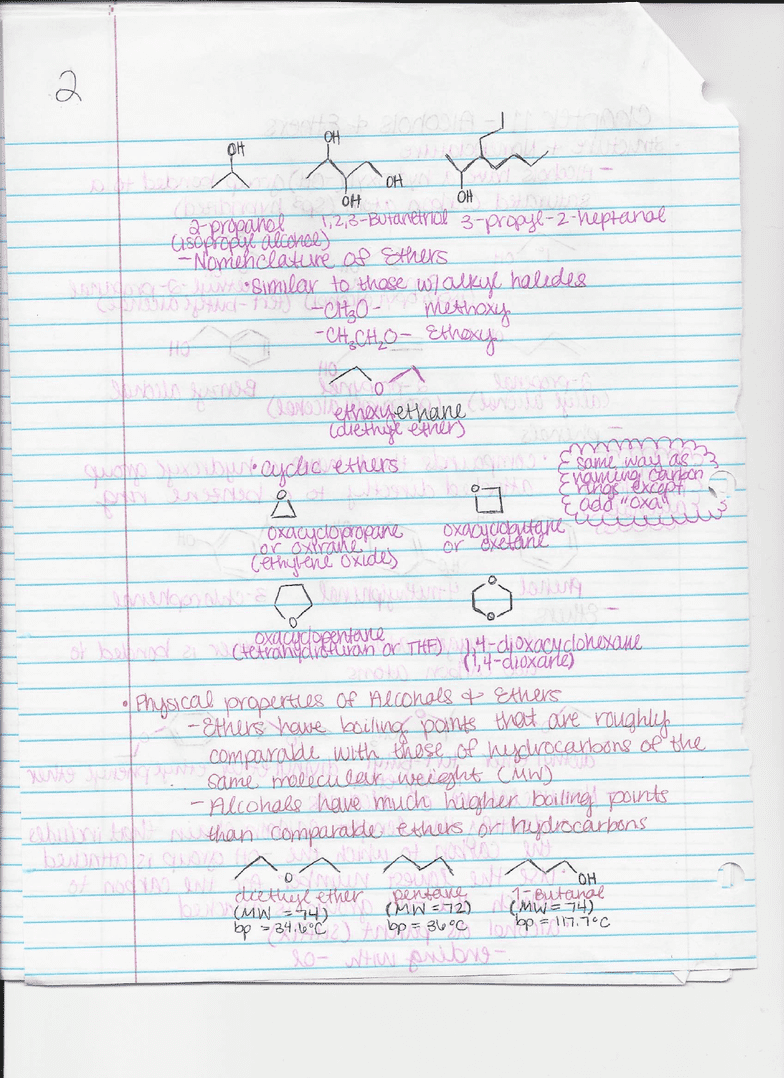 2
OH OH OH OH OH
2-propanol 1,2,3-Butanetriol 3-propyl-2-heptanol
(isopropyl alcohol)
-Nomenclature of Ethers
•Similar to those w/alkyl halides
-CH₃O- Methoxy
-CH₃CH₂O- Ethoxy
O
ethoxyethane
(diethyl ether)
•cyclic ethers
same way as
naming carbon
rings except
add "oxa"
O O
oxacyclopropane oxacyclobutane
or oxirane or oxetane
(ethylene oxide)
O O O
oxacyclopentane
(tetrahydrofuran or THF) 1,4-dioxacyclohexane
(1,4-dioxane)
•Physical properties of Alcohols & Ethers
-Ethers have boiling points that are roughly
comparable with those of hydrocarbons of the
same molecular weight (MW)
-Alcohols have much higher boiling points
than comparable ethers or hydrocarbons
O OH
diethyl ether pentane 1-Butanol
(MW =74) (MW =72) (MW =74)
bp =34.6°C bp = 36°C bp =117.7°C